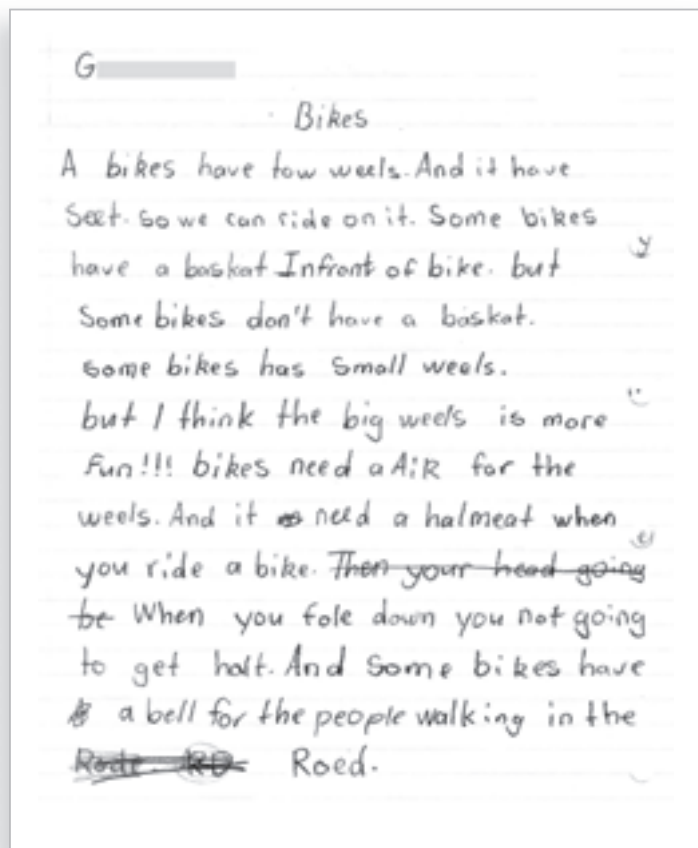 G
Bikes
A bikes have tow weels. And it have
Seet. so we can ride on it. Some bikes
have a baskat Infront of bike. but
Some bikes don't have a baskat.
some bikes has small weels.
but I think the big weels is more
Fun!!! bikes need a AiR for the
weels. And it need a halmeat when
you ride a bike. Then your head going
be When you fole down you not going
to get halt. And Some bikes have
a bell for the people walking in the
Roed.